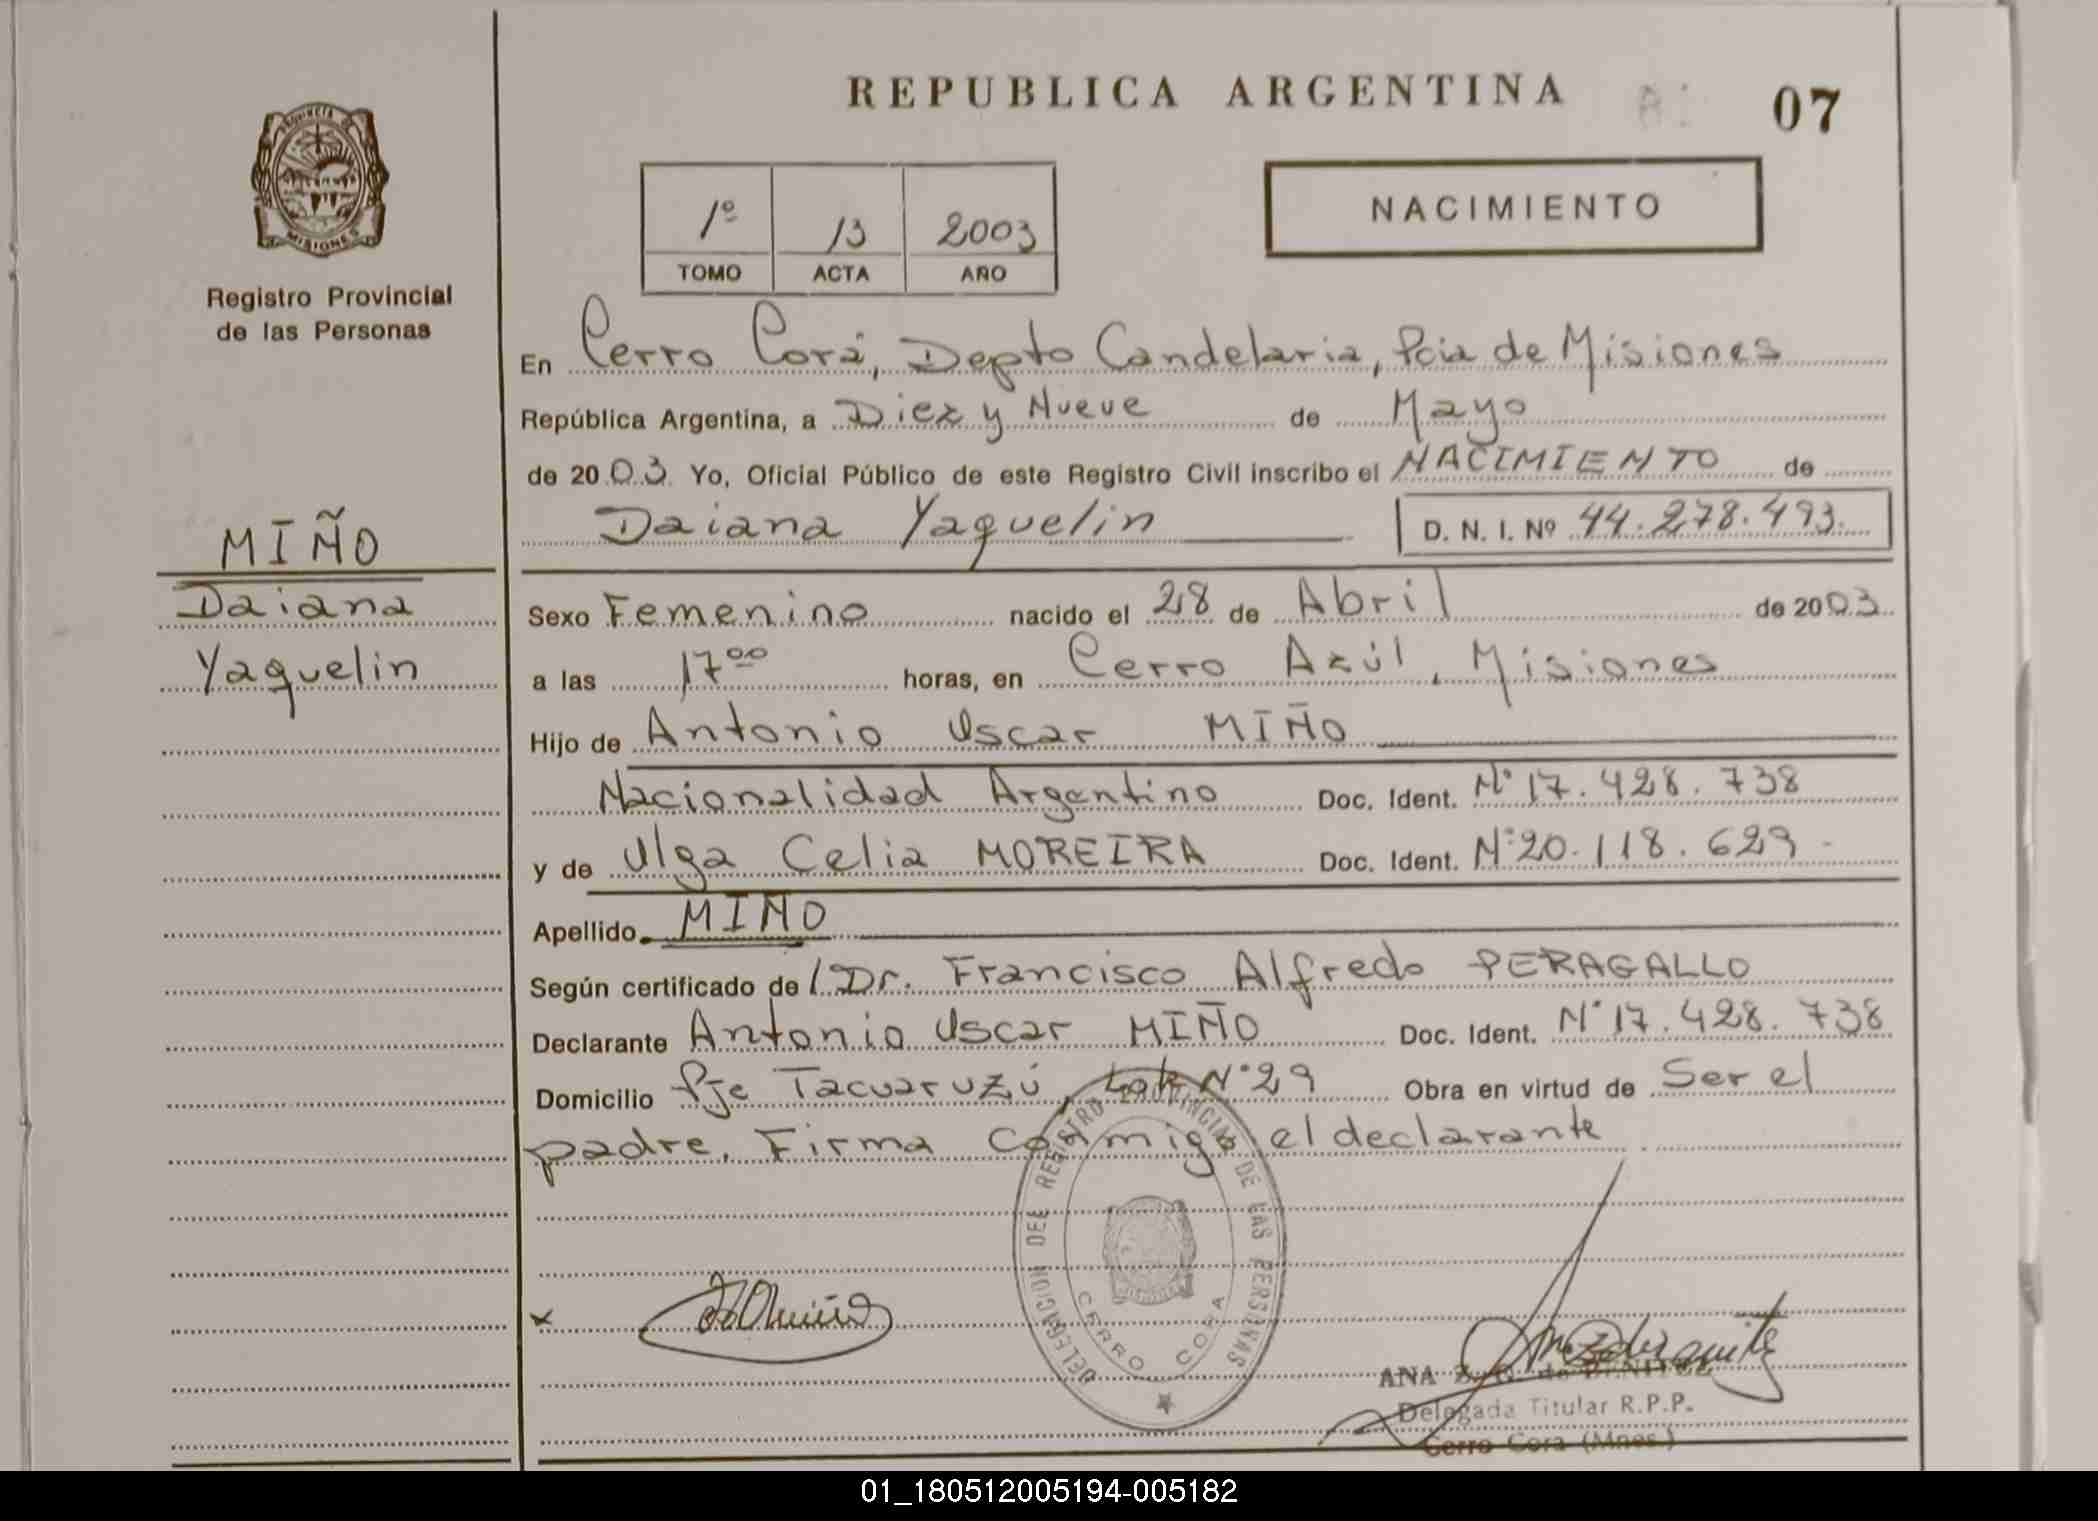 REPUBLICA ARGENTINA
07
PROVINCIA DE
MISIONES
Registro Provincial
de las Personas
1º 13 2003
TOMO ACTA AÑO
NACIMIENTO
En Cerro Corá, Depto Candelaria, Pcia de Misiones
República Argentina, a Diez y Nueve de Mayo
de 2003 Yo, Oficial Público de este Registro Civil inscribo el NACIMIENTO de
Daiana Yaquelin D. N. I. Nº 44.278.493.
MIÑO
Daiana
Yaquelin
Sexo Femenino nacido el 28 de Abril de 2003
a las 17 00 horas, en Cerro Azúl, Misiones
Hijo de Antonio Oscar MIÑO
Nacionalidad Argentino Doc. Ident. Nº 17.428.738
y de Olga Celia MOREIRA Doc. Ident. Nº 20.118.629-
Apellido MIÑO
Según certificado de / Dr. Francisco Alfredo PERAGALLO
Declarante Antonio Oscar MIÑO Doc. Ident. Nº 17.428.738
Domicilio Pje Tacuaruzú, Lote Nº 29 Obra en virtud de Ser el
padre. Firma conmigo el declarante
DELEGACION DEL REGISTRO PROVINCIAL DE LAS PERSONAS
CERRO CORA
ANA Z. de BENITEZ
Delegada Titular R.P.P.
Cerro Cora (Mnes.)
01_180512005194-005182